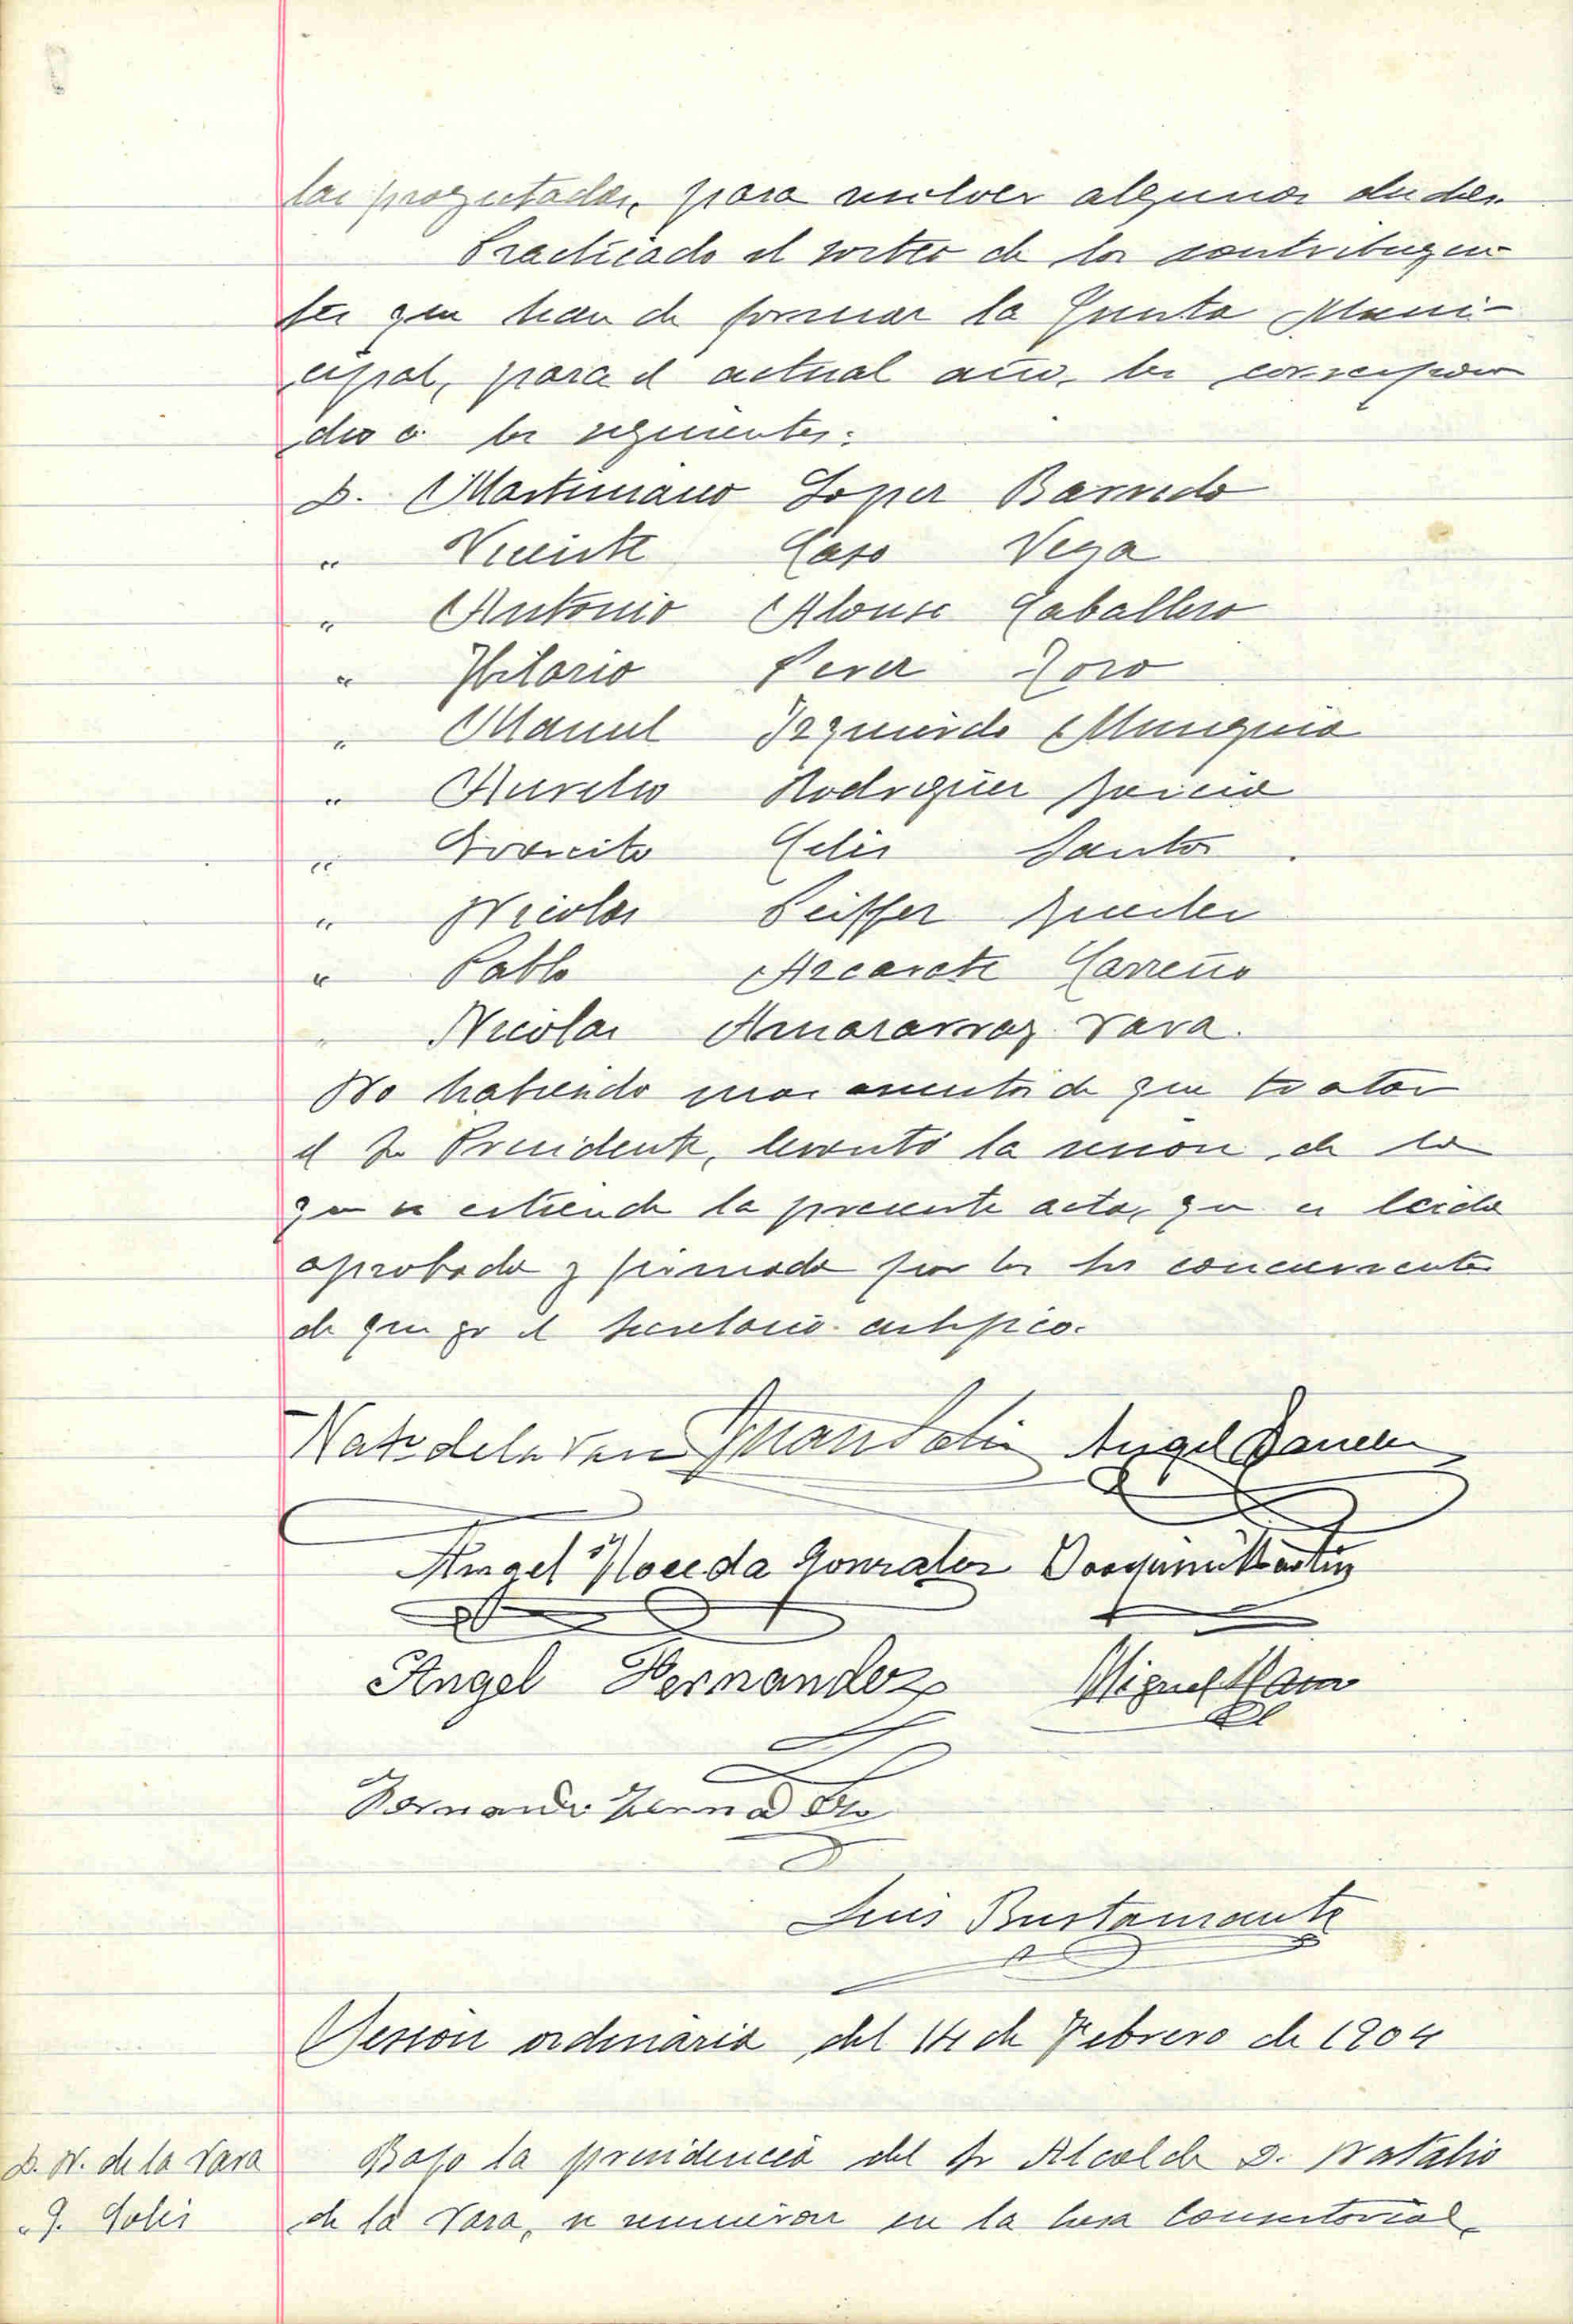 las proyectadas, para resolver algunas dudas.
Practicado el sorteo de los contribuyen
tes que han de formar la Junta Muni-
cipal, para el actual año, les correspon
dio a los siguientes:
D. Martiniano Lopez Barredo
" Vicente Caso Vega
" Antonio Alonso Caballero
" Hilario Perez Toro
" Manuel Izquierdo Munguia
" Aurelio Rodriguez Garcia
" Celis Santos
" Nicolas Peiffer
" Pablo Azcarate Carreño
" Nicolas Amararraz Vara.
No habiendo mas asuntos de que tratar
el Sr Presidente, levantó la sesion, de la
que se estiende la presente acta, que es leida
aprobada y firmada por los Srs concurrentes
de que yo el Secretario certifico.
Nato de la Vara Juan Solis Angel
Angel Noceda Gonzalez Joaquin Martin
Angel Hernandez Miguel
Luis Bustamante
Sesion ordinaria del 14 de Febrero de 1904
D. N. de la Vara
" J. Solis
Bajo la presidencia del Sr Alcalde D. Natalio
de la Vara, se reunieron en la Casa Consistorial,